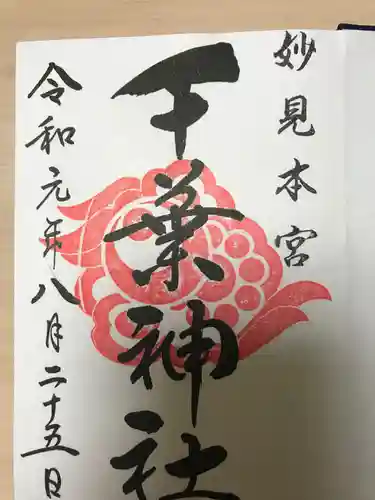 妙見本宮
千葉神社
令和元年八月二十五日